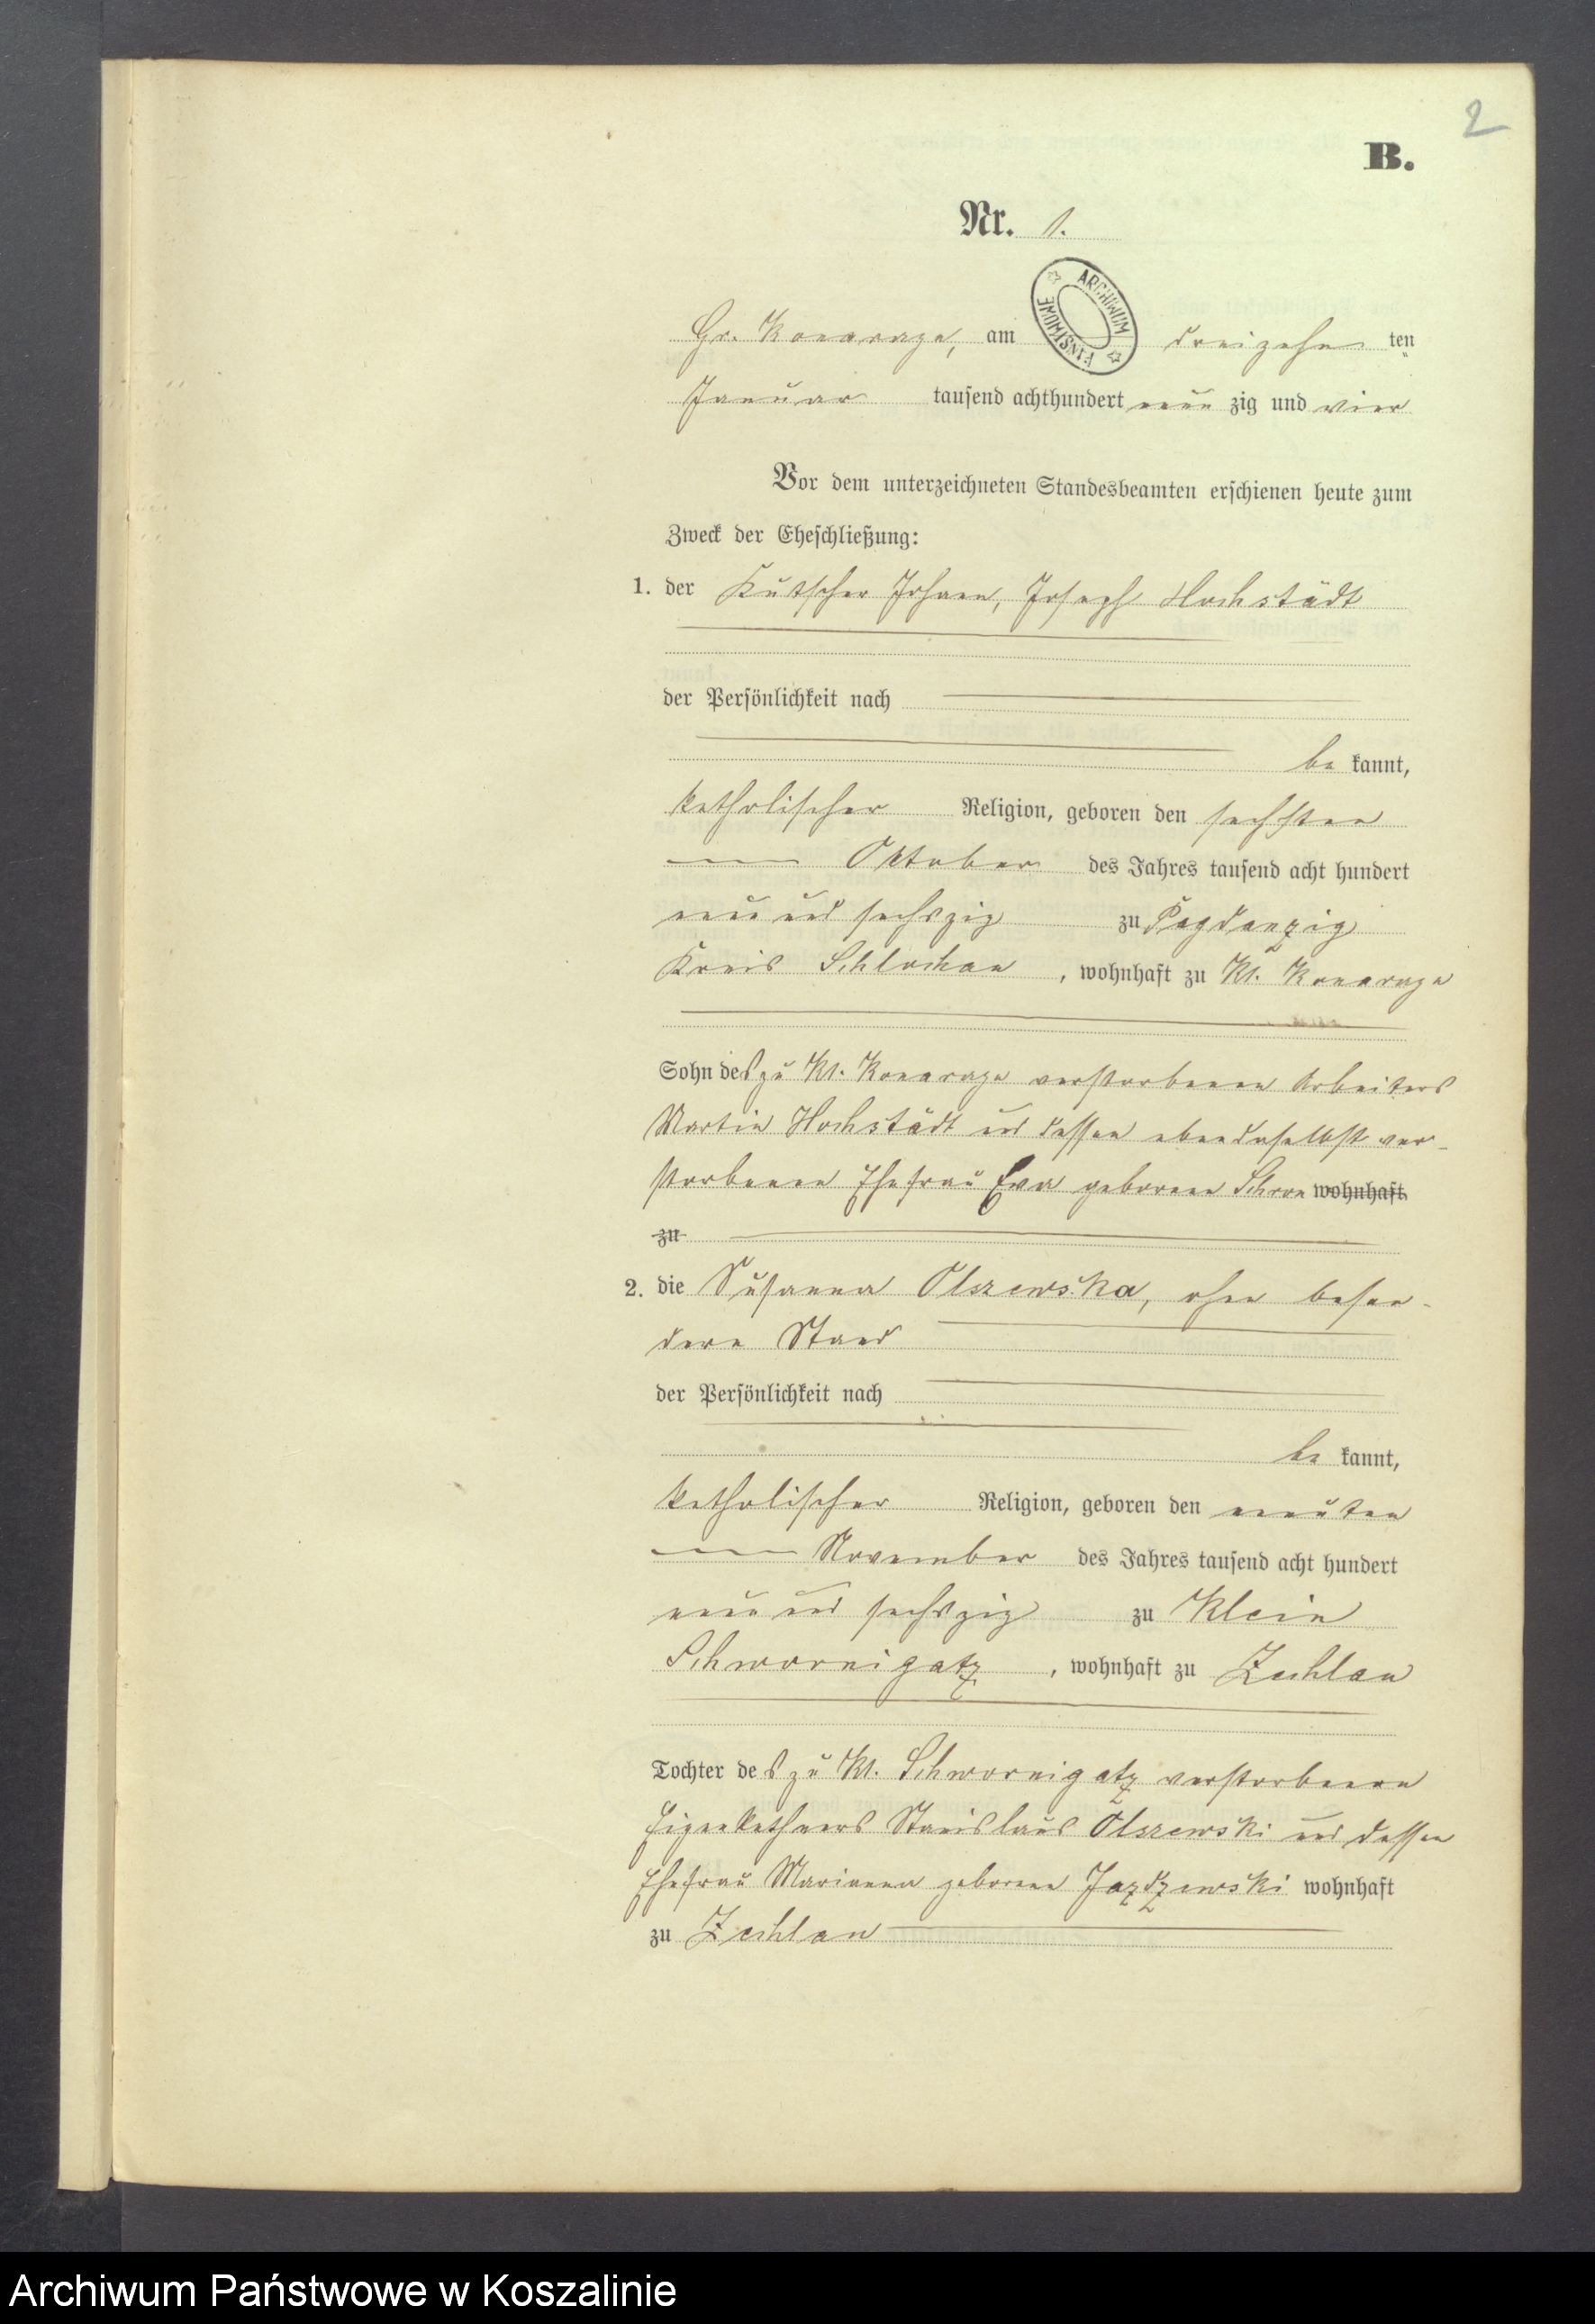 2
B.
Nr. 1.
ARCHIWUM PAŃSTWOWE
Gr. Konarczyn, am dreizehn ten
Januar tausend achthundert neun zig und vier
Vor dem unterzeichneten Standesbeamten erschienen heute zum
Zweck der Eheschließung:
1. der Kutscher Johann, Joseph Hochstädt
der Persönlichkeit nach
be kannt,
katholischer Religion, geboren den sechsten
Oktober des Jahres tausend acht hundert
neun und sechszig zu Pagdanzig
Kreis Schlochau, wohnhaft zu Kl. Konarczyn
Sohn des zu Kl. Konarczyn verstorbenen Arbeiters
Martin Hochstädt und dessen ebendaselbst ver-
storbenen Ehefrau Eva geborene wohnhaft
zu
2. die Susanna Olszewska, ohne beson-
dern Stand
der Persönlichkeit nach
be kannt,
katholischer Religion, geboren den neunten
November des Jahres tausend acht hundert
neun und sechszig zu Klein
Schwornigatz, wohnhaft zu Zechlau
Tochter des zu Kl. Schwornigatz verstorbenen
Eigenkäthners Stanislaus Olszewski und dessen
Ehefrau Marianna geborene wohnhaft
zu Zechlau
Archiwum Państwowe w Koszalinie